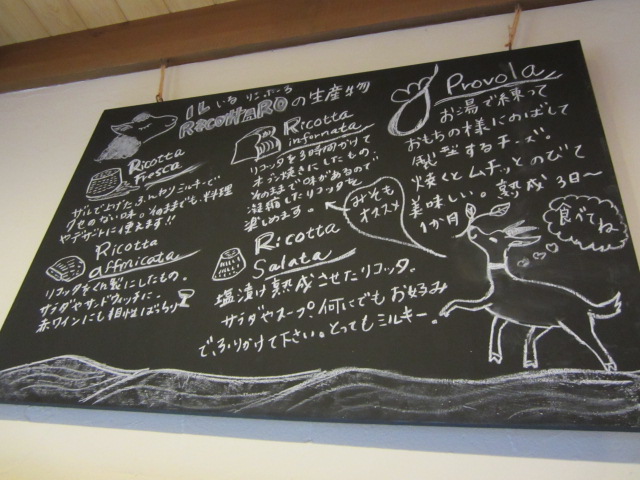 いる リンホーろ
IL RICOTTARO の生産物
Ricotta
fresca
ザルで上げた、ふんわりミルキーで
クセのない味。そのままでも、料理
やデザートに使えます!!
Ricotta
affmicata
リコッタをくん製にしたもの。
サラダやサンドウィッチに、
赤ワインにも相性ばっちり
Ricotta
infornata
リコッタを3時間かけて
オーブン焼きにしたもの。
そのままで味があるので
凝縮したリコッタを
楽しめます。
みそも
オススメ
Ricotta
Salata
塩漬け熟成させたリコッタ。
サラダやスープ何にでもお好み
で、ふりかけて下さい。とってもミルキー。
Provola
お湯で練って
おもちの様にのばして
成型するチーズ。
焼くとムチッとのびて
美味しい。熟成3日〜
1か月
食べてね